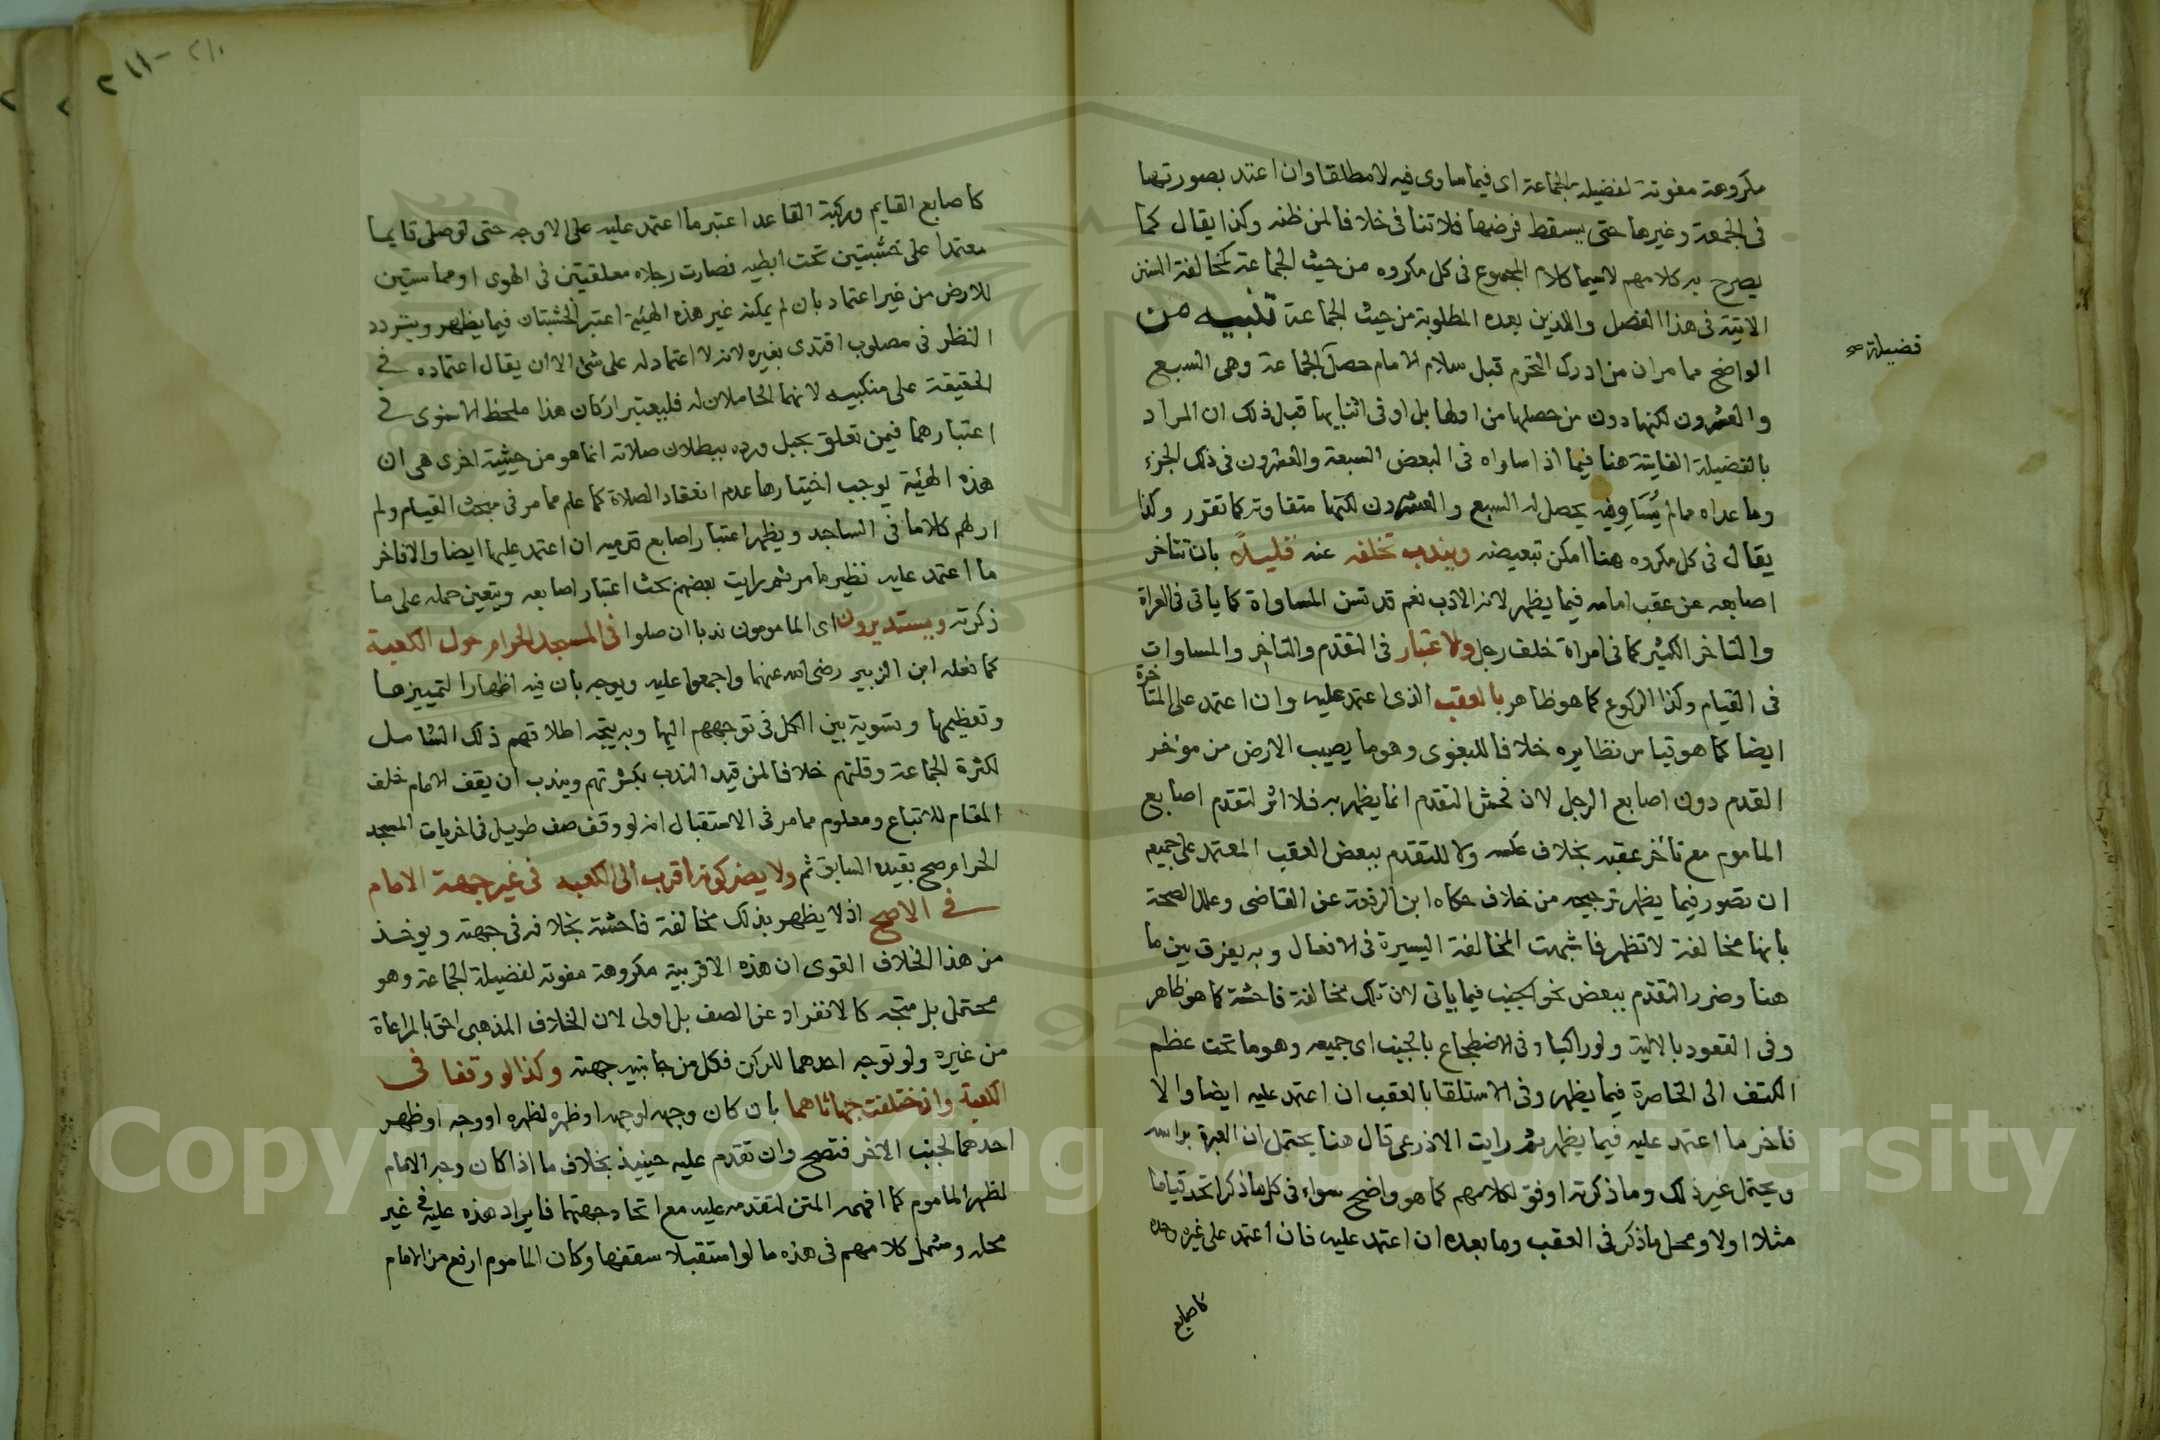 مكروهة مفوتة لفضيلة الجماعة اي فيما ساوى فيه لا مطلقا وان اعتد بصورتها
في الجمعة وغيرها حتى يسقط فرضها فلا تنافي خلافا لمن ظنه وكذا يقال كما
يصرح به كلامهم لاسيما كلام المجموع في كل مكروه من حيث الجماعة كمخالفة السنن
الاتية في هذا الفصل والذين بعده المطلوبة من حيث الجماعة تنبيه من
الواضح مما مر ان من ادرك التحرم قبل سلام الامام حصل الجماعة وهي السبع
فضيلة صح
والعشرون لكنها دون من حصلها من اولها بل او في اثنايها قبل ذلك ان المراد
بالفضيلة الفايتة هنا فيما اذا ساواه في البعض السبعة والعشرون في ذلك الجزء
وما عداه مما لم يساو فيه يحصل له السبع والعشرون لكنها متفاوتة كما تقرر وكذا
يقال في كل مكروه هنا امكن تبعيضه ويندب تخلفه عنه قليلا بان تتاخر
اصابعه عن عقب امامه فيما يظهر لانه الادب نعم قد تسن المساواة كما ياتي في العراة
والتاخر الكثير كما في امراة خلف رجل ولاعتبار في التقدم والتاخر والمساوات
في القيام وكذا الركوع كما هو ظاهر بالعقب الذي اعتمد عليه وان اعتمد على المتاخرة
ايضا كما هو قياس نظايره خلافا للبغوي وهو ما يصيب الارض من موخر
القدم دون اصابع الرجل لان فحش التقدم انما يظهر به فلا اثر لتقدم اصابع
الماموم مع تاخر عقبه بخلاف عكسه ولا للتقدم ببعض العقب المعتمد على جميعه
ان تصور فيما يظهر ترجيحه من خلاف حكاه ابن الرفعة عن القاضي وعلل الصحة
بانها مخالفة لا تظهر فاشبهت المخالفة اليسيرة في الافعال وبه يفرق بين ما
هنا وضرر التقدم ببعض نحو الجنب فيما ياتي لان تلك مخالفة فاحشة كما هو ظاهر
وفي القعود بالالية ولو راكبا وفي الاضطجاع بالجنب اي جميعه وهو ما تحت عظم
الكتف الى الخاصرة فيما يظهر وفي الاستلقا بالعقب ان اعتمد عليه ايضا والا
فاخر ما اعتمد عليه فيما يظهر ثم رايت الاذرعي قال هنا يحتمل ان العبرة براسه
ويحتمل غير ذلك وما ذكرته اوفق لكلامهم كما هو واضح سواء في كل ما ذكر اتحد قياما
مثلا اولا ومحل ماذكر في العقب وما بعده ان اعتمد عليه فان اعتمد على غيره وحده
كاصابع
كاصابع القايم وركبة القاعد اعتبر ما اعتمد عليه على الاوجه حتى لو صلى قايما
معتمدا على خشبتين تحت ابطيه فصارت رجلاه معلقتين في الهوى او مماستين
للارض من غير اعتماد بان لم يمكنه غير هذه الهيئة اعتبر الخشبتان فيما يظهر ويتردد
النظر في مصلوب اقتدى بغيره لانه لا اعتماد له على شئ الا ان يقال اعتماده في
الحقيقة على منكبيه لانهما الحاملان له فليعتبر اركان هذا ملحظ الاسنوي في
اعتبارهما فيمن تعلق بحبل ورده ببطلان صلاته انما هو من حيثية اخرى هي ان
هذه الهيئة يوجب اختيارها عدم انعقاد الصلاة كما علم مما مر في مبحث القيام ولم
ار لهم كلاما في الساجد ويظهر اعتبار اصابع قدميه ان اعتمد عليها ايضا والا فاخر
ما اعتمد عليه نظير ما مر ثم رايت بعضهم بحث اعتبار اصابعه ويتعين حمله على ما
ذكرته ويستديرون اي المامومون ندبا ان صلوا في المسجد الحرام حول الكعبة
كما فعله ابن الزبير رضي الله عنهما واجمعوا عليه ويوجه بان فيه اظهارا لتمييزها
وتعظيمها وتسوية بين الكل في توجههم اليها وبه يتجه اطلاقهم ذلك الشامل
لكثرة الجماعة وقلتهم خلافا لمن قيد الندب بكثرتهم ويندب ان يقف الامام خلف
المقام للاتباع ومعلوم مما مر في الاستقبال انه لو وقف صف طويل في اخريات المسجد
الحرام صح بقيده السابق ثم ولا يضر كونه اقرب الى الكعبة في غير جهة الامام
في الاصح اذ لا يظهر بذلك مخالفة فاحشة بخلافه في جهته ويوخذ
من هذا الخلاف القوي ان هذه الاقربية مكروهة مفوتة لفضيلة الجماعة وهو
محتمل بل متجه كالانفراد عن الصف بل اولى لان الخلاف المذهبي احق بالمراعاة
من غيره ولو توجه احدهما للركن فكل من جانبيه جهته وكذا لو وقفا في
الكعبة واختلفت جهاتاهما بان كان وجهه لوجهه او ظهره لظهره او وجه او ظهر
احدهما لجنب الاخر فتصح وان تقدم عليه حينيذ بخلاف ما اذا كان وجه الامام
لظهر الماموم كما افهمه المتن لتقدمه عليه مع اتحاد جهتهما فايراد هذه عليه في غير
محله ومشمل كلامهم في هذه ما لو استقبلا سقفها وكان الماموم ارفع من الامام
Copyright © King Saud University